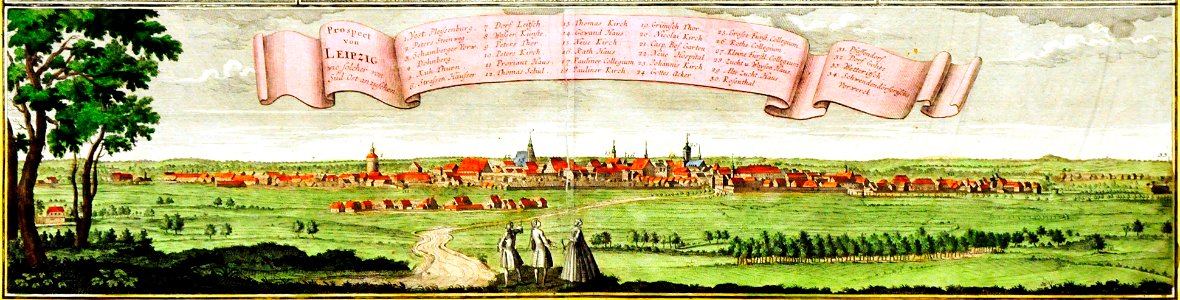 Prospect
von
LEIPZIG
wie solches von
Süd Ost anzusehen
1. Vest. Pleissenburg.
2. Peters Steinweg
4. Dolnberg.
6. Strassen Häusser
7. Dorf
8. Wasser Künste
9. Peters Thor
10. Peters Kirch
11. Proviant Haus
12. Thomas Schul
13. Thomas Kirch
14. Gewand Haus
15. Neue Kirch
16. Rath Haus
17. Pauliner Collegium
18. Pauliner Kirch
19. Grimisch Thor
20. Nicolai Kirch
21. Caep. Bose Garten
22. Neue Hospital
23. Johannes Kirch
24. Gottes Acker
25. Grosse Fürst. Collegium
26. Rothe Collegium
27. Kleine Fürst. Collegium
28. Zucht u. Waysen Haus
29. Alte Zucht Haus
30. Rosenthal
31. Pfaffendorf
32. Dorf
34.
Vorwerck